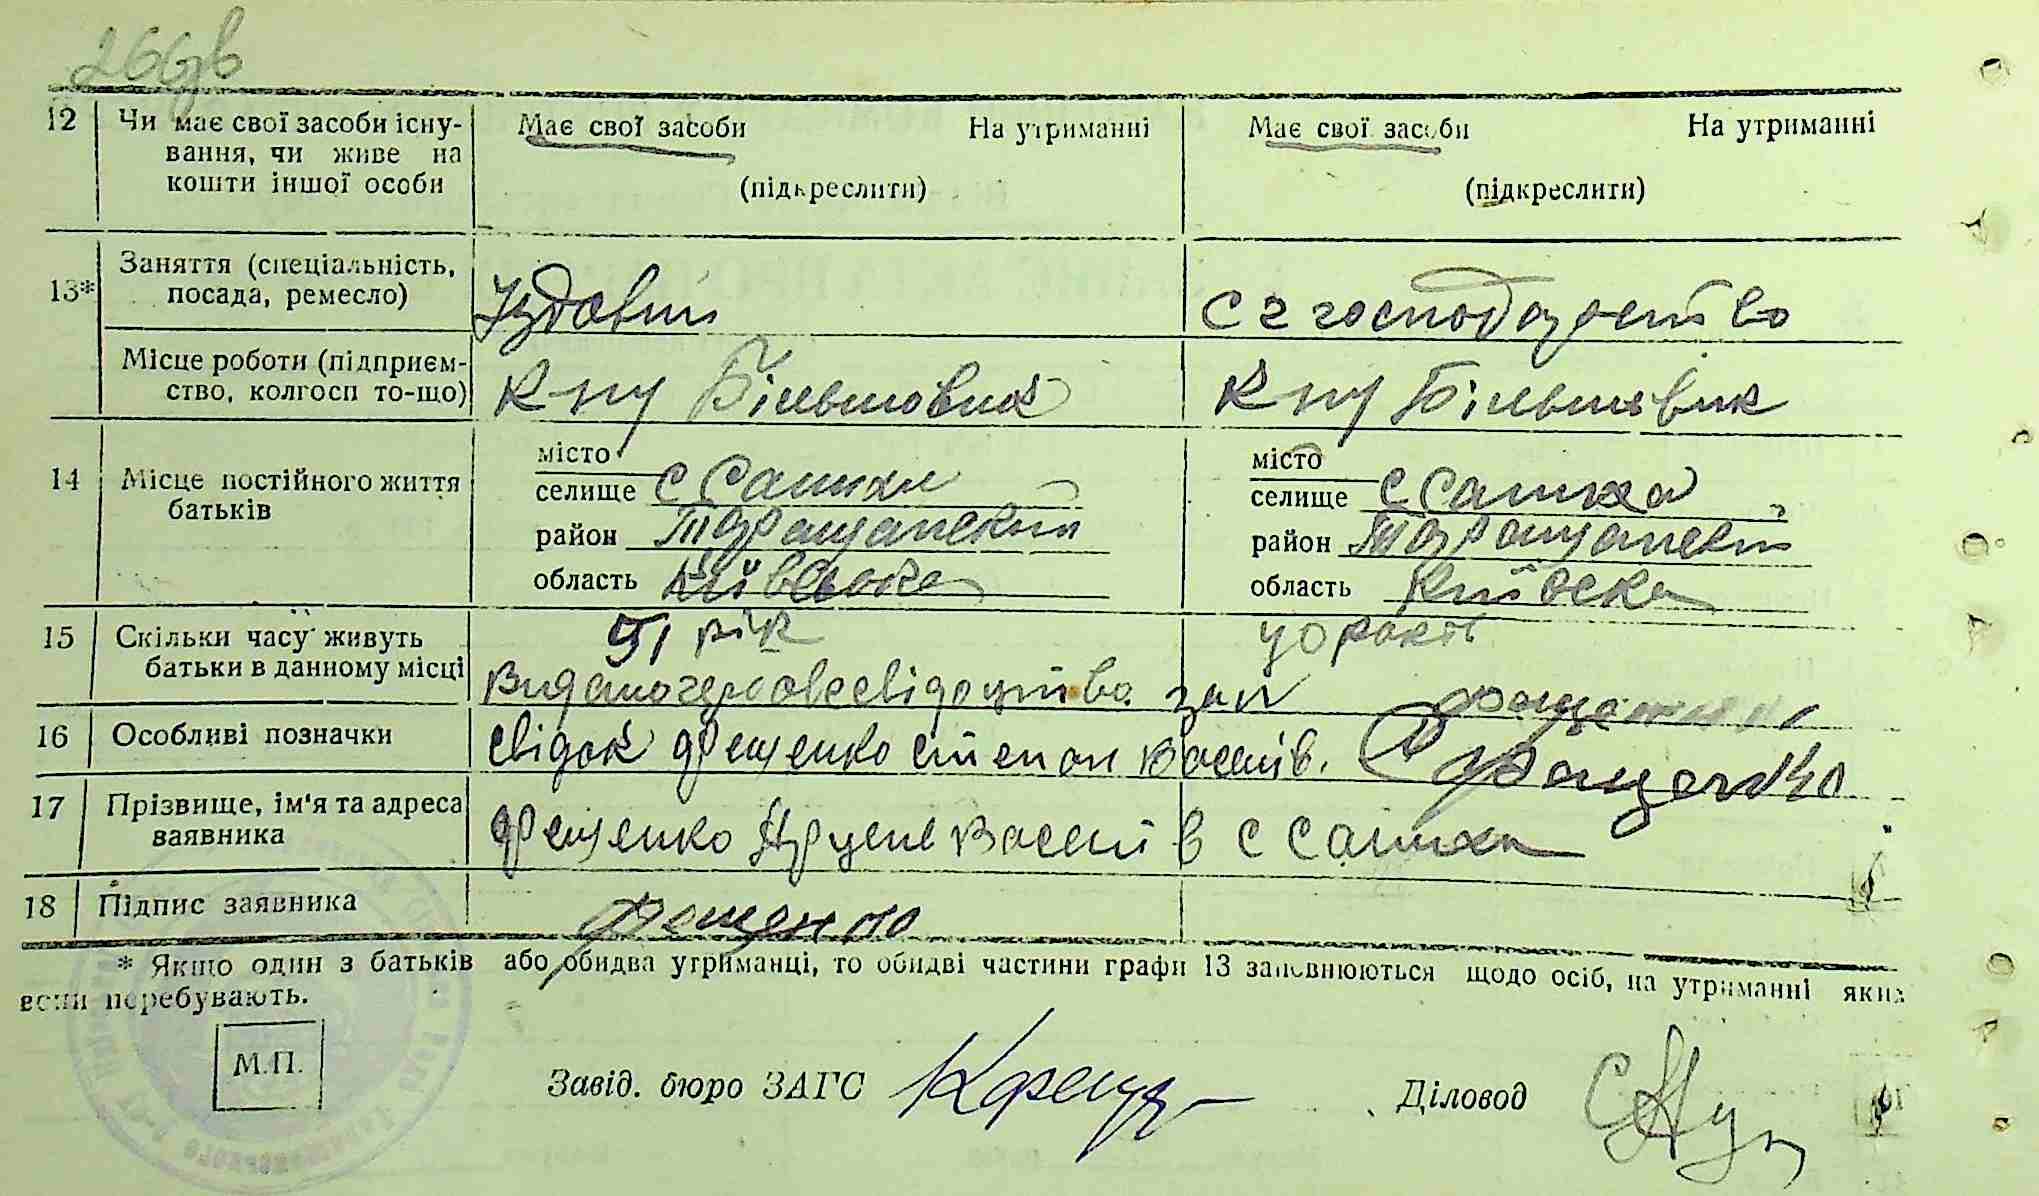 12 Чи має свої засоби існу-
вання, чи живе на
кошти іншої особи
Має свої засоби На утриманні
(підкреслити)
Має свої засоби На утриманні
(підкреслити)
13* Заняття (спеціальність,
посада, ремесло)
Їздовий
с г господарство
Місце роботи (підприєм-
ство, колгосп то-що)
Більшовик
Більшевик
14 Місце постійного життя
батьків
місто
селище с Сашки
район Таращанский
область Київська
місто
селище с Сашка
район Таращанск
область
15 Скільки часу живуть
батьки в данному місці
рік
16 Особливі позначки
свідок Фещенко Степан Васелів.
17 Прізвище, ім'я та адреса
заявника
Фещенко Василів с Сашки
18 Підпис заявника
* Якщо один з батьків або обидва утриманці, то обидві частини графи 13 заповнюються щодо осіб, на утриманні яких
вони перебувають.
М.П.
Завід. бюро ЗАГС
Діловод